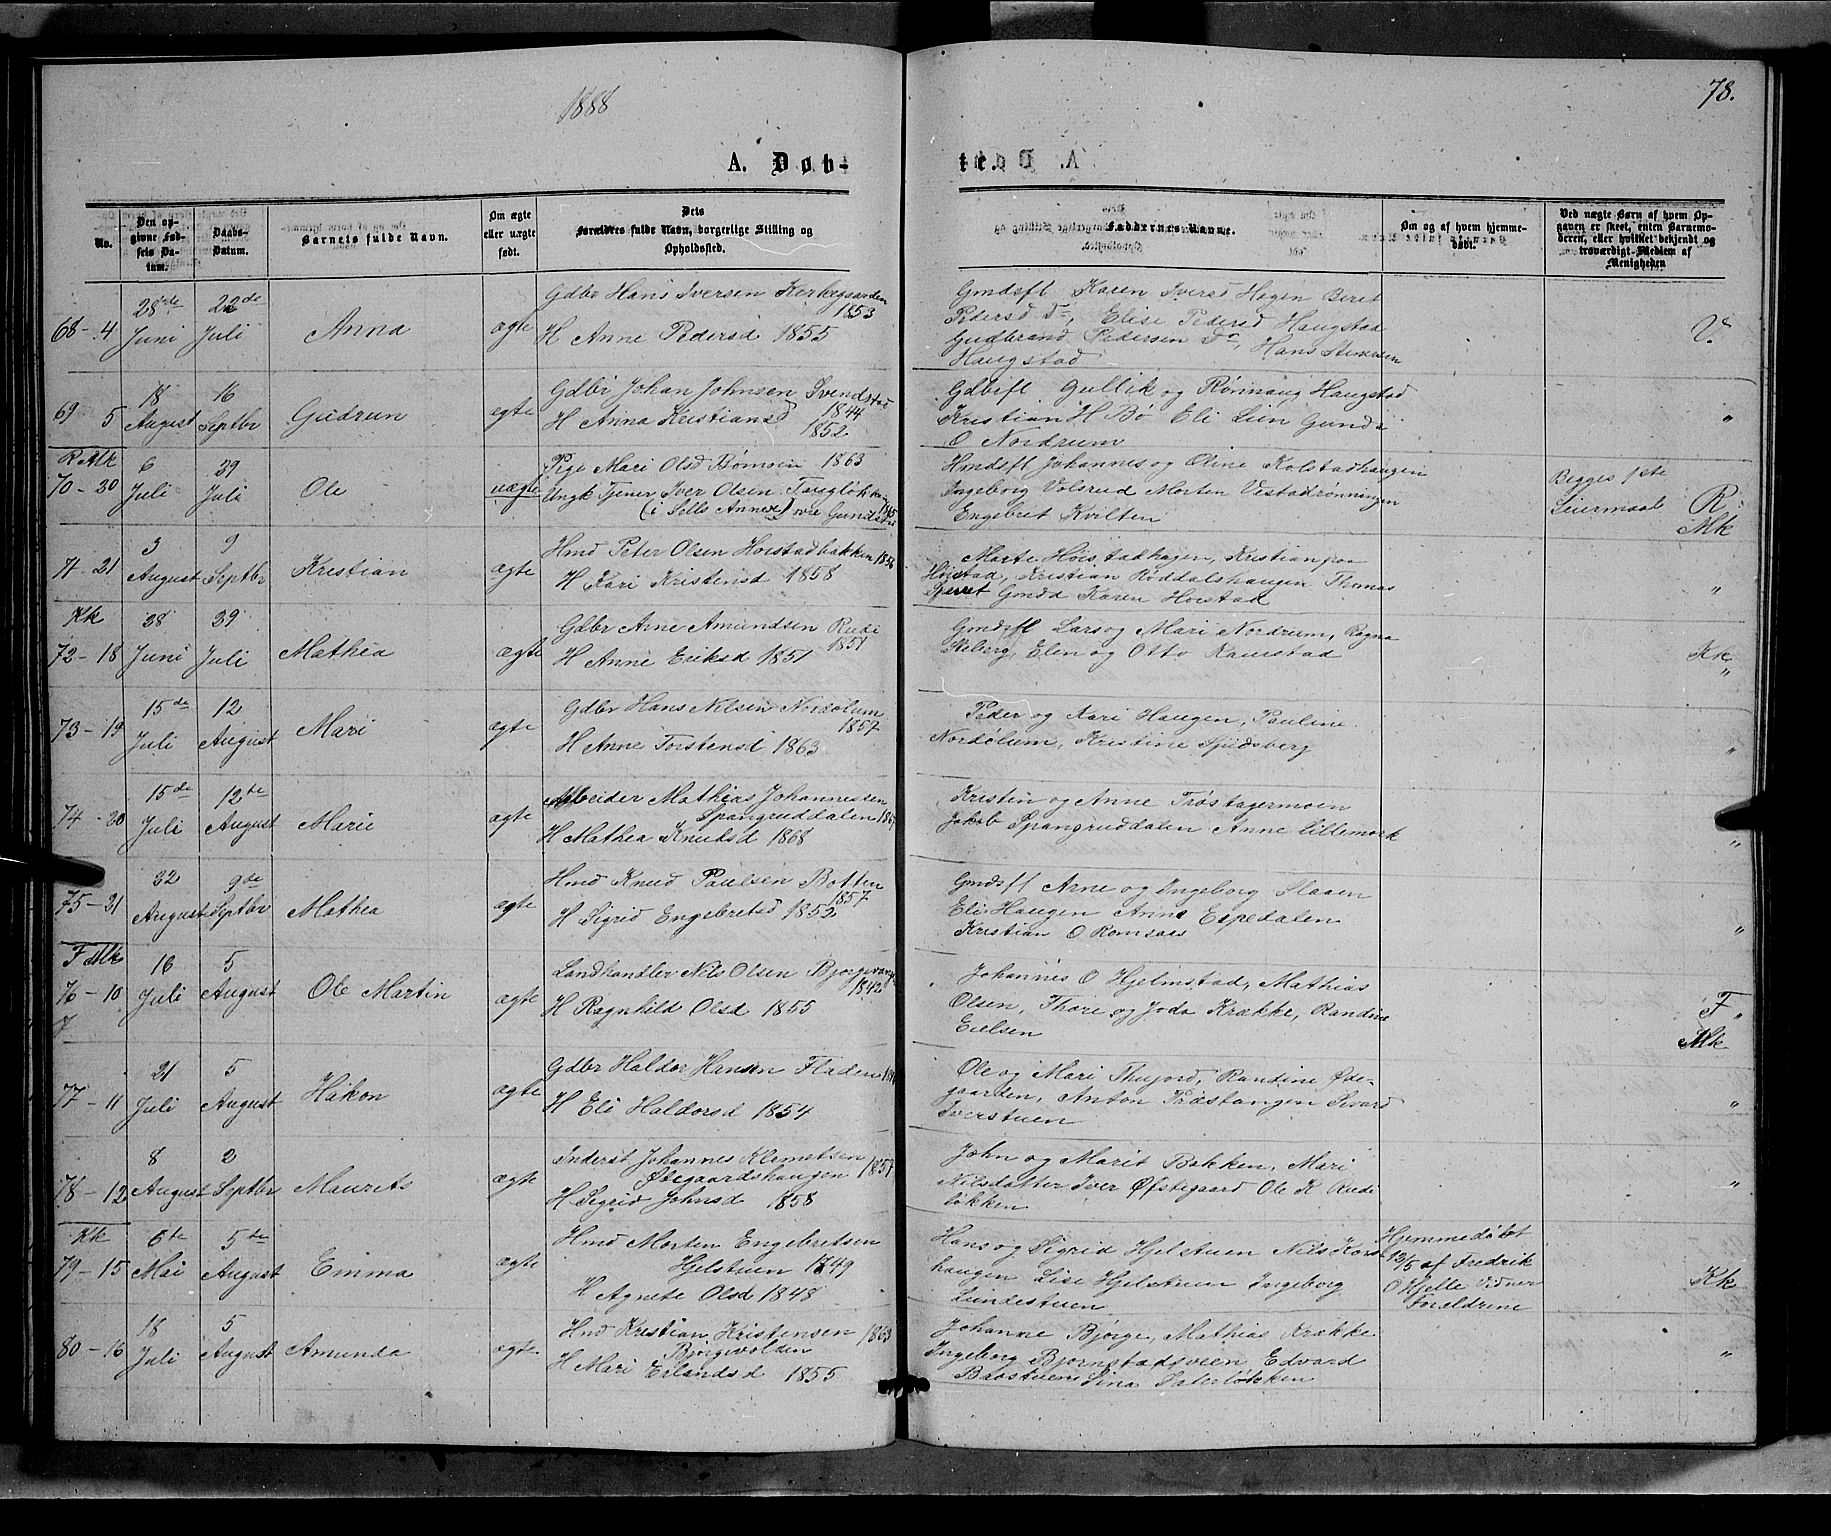 1888
78.
A. Døb-
te.
No.
Den op-
givne Fød-
sels Da-
tum.
Daabs-
Datum.
Barnets fulde Navn.
Om ægte
eller uægte
født.
Dets
Forældres fulde Navn, borgerlige Stilling og
Opholdssted.
Faddernes Navne.
Om og af hvem hjemme-
døbt.
Ved uægte Børn af hvem Op-
gaven er skeet, enten Barnemo-
deren, eller hvilket bekjendt og
troværdigt Medlem af
Menigheden
68-4
28de
Juni
22de
Juli
Anna
ægte
Gdbr Hans Iversen Kerkegaarden
1853
H Anne Pedersd 1855
Gmdsfl Karen Iversd Hagen Beret
Pedersd Do, Elise Pedersd Haugstad
Gudbrand Pedersen Do, Hans Iversen
Haugstad
V.
69 5
18
August
16
Septbr
Gudrun
ægte
Gdbr Johan Johnsen Svendstad
1844
H Anna Kristiansd
1852
Gdbrfl Gullik og Rønnaug Haugstad
Kristian H Bø Eli Lien Gunda
O Nordrum
"
R Mk
70-20
6
Juli
29
Juli
Ole
uægte
Pige Mari Olsd Bømoen 1863
Ungk Tjener Iver Olsen
(i Sells Annex)
Hmdsfl Johannes og Oline Kolstadhaugen
Ingeborg Volsrud Morten Vestadrønningen
Engebret Kvilten
Begges 1ste
Leiermaal
R
Mk
71-21
3
August
9
Septbr
Kristian
ægte
Hmd Peter Olsen Hoistadbakken 1856
H Kari Kristensd 1858
Marte Høistadhagen, Kristian paa
Høistad, Kristian Røddalshaugen Thomas
Gmdd Karen Hoistad
"
Kk
72-18
28
Juni
29
Juli
Mathea
ægte
Gdbr Arne Amundsen Rudi
1851
H Anne Eriksd 1851
Gmdsfl Lars og Mari Nordrum, Ragna
Steberg, Elen og Otto Kaurstad
Kk
"
73-19
15de
Juli
12
August
Mari
ægte
Gdbr Hans Nilsen Nordølum
1857
H Anne Torstensd 1863
Peder og Kari Haugen, Pauline
Nordølum, Kristine Sjudsberg
"
74-20
15de
Juli
12te
August
Marie
ægte
Arbeider Mathias Johannessen
Spangruddalen
H Mathea Knudsd 1868
Kristin og Anne Trøstagermoen
Jakob Spangruddalen Anne Lillemork
"
75-21
22
August
9de
Septbr
Mathea
ægte
Hmd Knud Paulsen Botten
1857
H Sigrid Engebretsd 1852
Gmdsfl Arne og Ingeborg Slaaen
Eli Haugen Anne Espedalen
Kristian O Romsaas
"
F Mk
76-10
7
16
Juli
5
August
Ole Martin
ægte
Landhandler Nils Olsen Bjorgevang
1842
H Ragnhild Olsd 1855
Johannes O Hjelmstad, Mathias
Olsen, Thore og Joda Krække, Randine
Eielsen
F "
Mk
77-11
21
Juli
5
August
Håkon
ægte
Gdbr Haldor Hansen Fladen
H Eli Haldorsd 1854
Ole og Mari Thujord, Randine Øde-
gaarden, Anton Trøstangen Sivard
Iverstuen
"
78-12
8
August
2
Septbr
Maurits
ægte
Inderst Johannes Klemetsen 1857
Østegaardshaugen
H Sigrid Johnsd 1858
John og Marit Bakken, Mari
Nilsdatter Iver Øfstegaard Ole K Rudi
løkken
"
Kk
79-15
6te
Mai
5te
August
Emma
ægte
Hmd Morten Engebretsen
Hjelstuen 1849
H Agnete Olsd 1848
Hans og Sigrid Hjelstuen Nils Kors
haugen Lise Hjelstuen Ingeborg
Lundestuen
Hjemmedøbt
12/5 af Fredrik
O Hjelle Vidner
Foreldrene
Kk
80-16
18
Juli
5
August
Amunda
ægte
Hmd Kristian Kristensen 1863
Bjørgevolden
H Mari Erlandsd 1855
Johanne Bjørge, Mathias Krække
Ingeborg Bjornstadsveen, Edvard
Baastuen, Lina Saterløkken
"